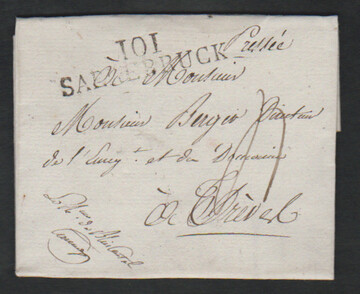 101
SARREBRUCK
Pressée
A Monsieur
Monsieur Berger Directeur
de l'Enreg.t et du Domaine
à Trèves